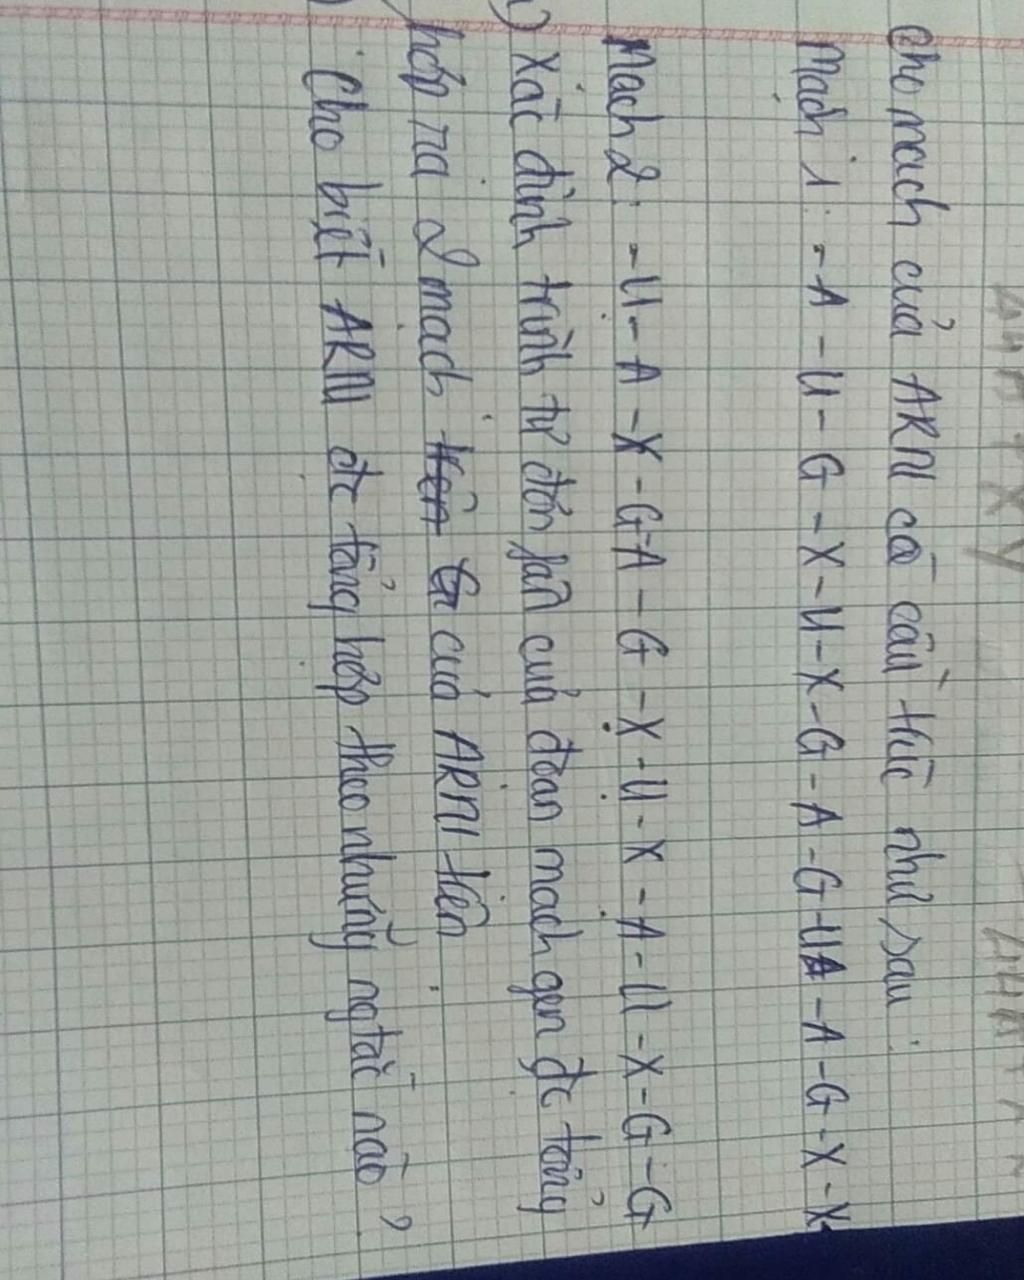 Cho mạch của ARN có cấu trúc như sau:
Mạch 1: - A - U - G - X - U - X - G - A - G - U A - A - G - X - X
Mạch 2: - U - A - X - G - A - G - X - U - X - A - U - X - G - G
) Xác định trình tự đơn phân của đoạn mạch gen đc tổng
hợp ra 2 mạch của ARN trên
Cho biết ARN đc tổng hợp theo những ngtắc nào?